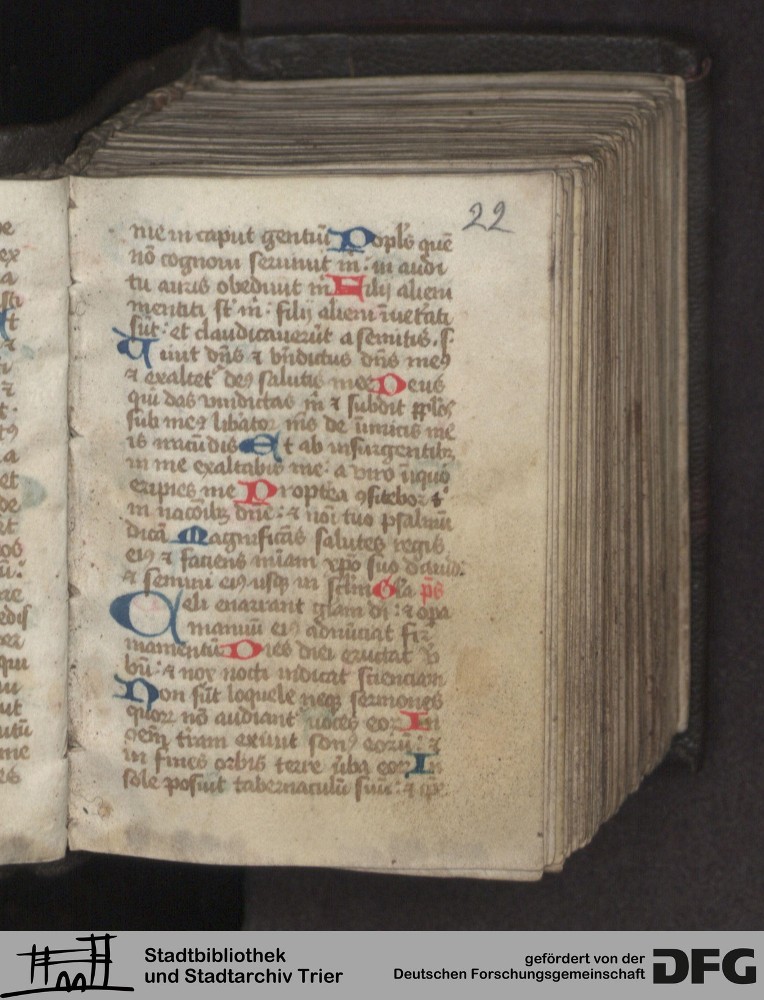 22
me in caput gentiū Popl's quē
nō cognoui seruiuit m̄: in audi
tu auris obediuit m̄ Filij alieni
mentiti st' m̄: filij alieni īuet'ati
sūt: et claudicauerūt a semitis. s.
Uiuit dn̄s ⁊ bn̄dictus dn̄s meꝰ
⁊ exaltet' deꝰ salutis mee Deus
qui das vindictas m̄ ⁊ subdit ppl'os
sub me
libator m̄s de īimicis me
is iracūdis Et ab insurgentibꝫ
in me exaltabis me: a viro īiquo
eripies me Proptea ꝯfitebor t'
in nacōibꝫ dn̄e: ⁊ nōi tuo psalmū
dicā Magnificās salutes regis
eiꝰ ⁊ faciens mīam xp̄o suo dauid:
⁊ semini eiꝰ usqꝫ in sc̄lm Gl'a p̄s
Celi enarrant gl'iam di: ⁊ opa
manuū eiꝰ adnūciat fir
mamentū Dies diei eructat v̄
bū: ⁊ nox nocti indicat scienciam
Non sūt loquele neqꝫ sermones
quoꝝ nō audiant' uoces eoꝝ In
oēm t'ram exiuit sonꝰ eoꝝ: ⁊
in fines orbis terre ūba eoꝝ In
sole posuit tabernaculū suū: ⁊ ip̄e
Stadtbibliothek
und Stadtarchiv Trier
gefördert von der
Deutschen Forschungsgemeinschaft
DFG